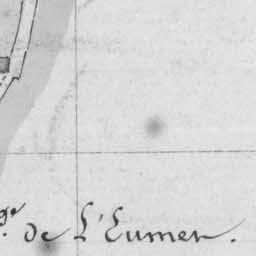 ge. de L'Eumer.